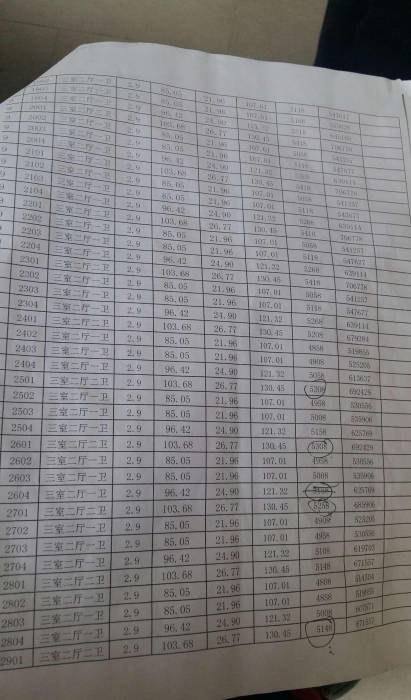 2001 三室二厅二卫 2.9 103.68 26.77 130.45 5418 706778
2002 三室二厅一卫 2.9 85.05 21.96 107.01 5058 541257
2003 三室二厅一卫 2.9 85.05 21.96 107.01 5118 547677
2004 三室二厅一卫 2.9 96.42 24.90 121.32 5268 639114
2101 三室二厅二卫 2.9 103.68 26.77 130.45 5418 706778
2102 三室二厅一卫 2.9 85.05 21.96 107.01 5058 541257
2103 三室二厅一卫 2.9 85.05 21.96 107.01 5118 547677
2104 三室二厅一卫 2.9 96.42 24.90 121.32 5268 639114
2201 三室二厅二卫 2.9 103.68 26.77 130.45 5418 706778
2202 三室二厅一卫 2.9 85.05 21.96 107.01 5058 541257
2203 三室二厅一卫 2.9 85.05 21.96 107.01 5118 547677
2204 三室二厅一卫 2.9 96.42 24.90 121.32 5268 639114
2301 三室二厅二卫 2.9 103.68 26.77 130.45 5418 706778
2302 三室二厅一卫 2.9 85.05 21.96 107.01 5058 541257
2303 三室二厅一卫 2.9 85.05 21.96 107.01 5118 547677
2304 三室二厅一卫 2.9 96.42 24.90 121.32 5268 639114
2401 三室二厅二卫 2.9 103.68 26.77 130.45 5208 679384
2402 三室二厅一卫 2.9 85.05 21.96 107.01 4858 519855
2403 三室二厅一卫 2.9 85.05 21.96 107.01 4908 525205
2404 三室二厅一卫 2.9 96.42 24.90 121.32 5058 613637
2501 三室二厅二卫 2.9 103.68 26.77 130.45 5308 692429
2502 三室二厅一卫 2.9 85.05 21.96 107.01 4958 530556
2503 三室二厅一卫 2.9 85.05 21.96 107.01 5008 535906
2504 三室二厅一卫 2.9 96.42 24.90 121.32 5158 625769
2601 三室二厅二卫 2.9 103.68 26.77 130.45 5308 692429
2602 三室二厅一卫 2.9 85.05 21.96 107.01 4958 530556
2603 三室二厅一卫 2.9 85.05 21.96 107.01 5008 535906
2604 三室二厅一卫 2.9 96.42 24.90 121.32 5158 625769
2701 三室二厅二卫 2.9 103.68 26.77 130.45 5258 685906
2702 三室二厅一卫 2.9 85.05 21.96 107.01 4908 525205
2703 三室二厅一卫 2.9 85.05 21.96 107.01 4958 530556
2704 三室二厅一卫 2.9 96.42 24.90 121.32 5108 619703
2801 三室二厅二卫 2.9 103.68 26.77 130.45 5148 671557
2802 三室二厅一卫 2.9 85.05 21.96 107.01 4808 514504
2803 三室二厅一卫 2.9 85.05 21.96 107.01 4858 519855
2804 三室二厅一卫 2.9 96.42 24.90 121.32 5008 607571
2901 三室二厅二卫 2.9 103.68 26.77 130.45 5148 671557